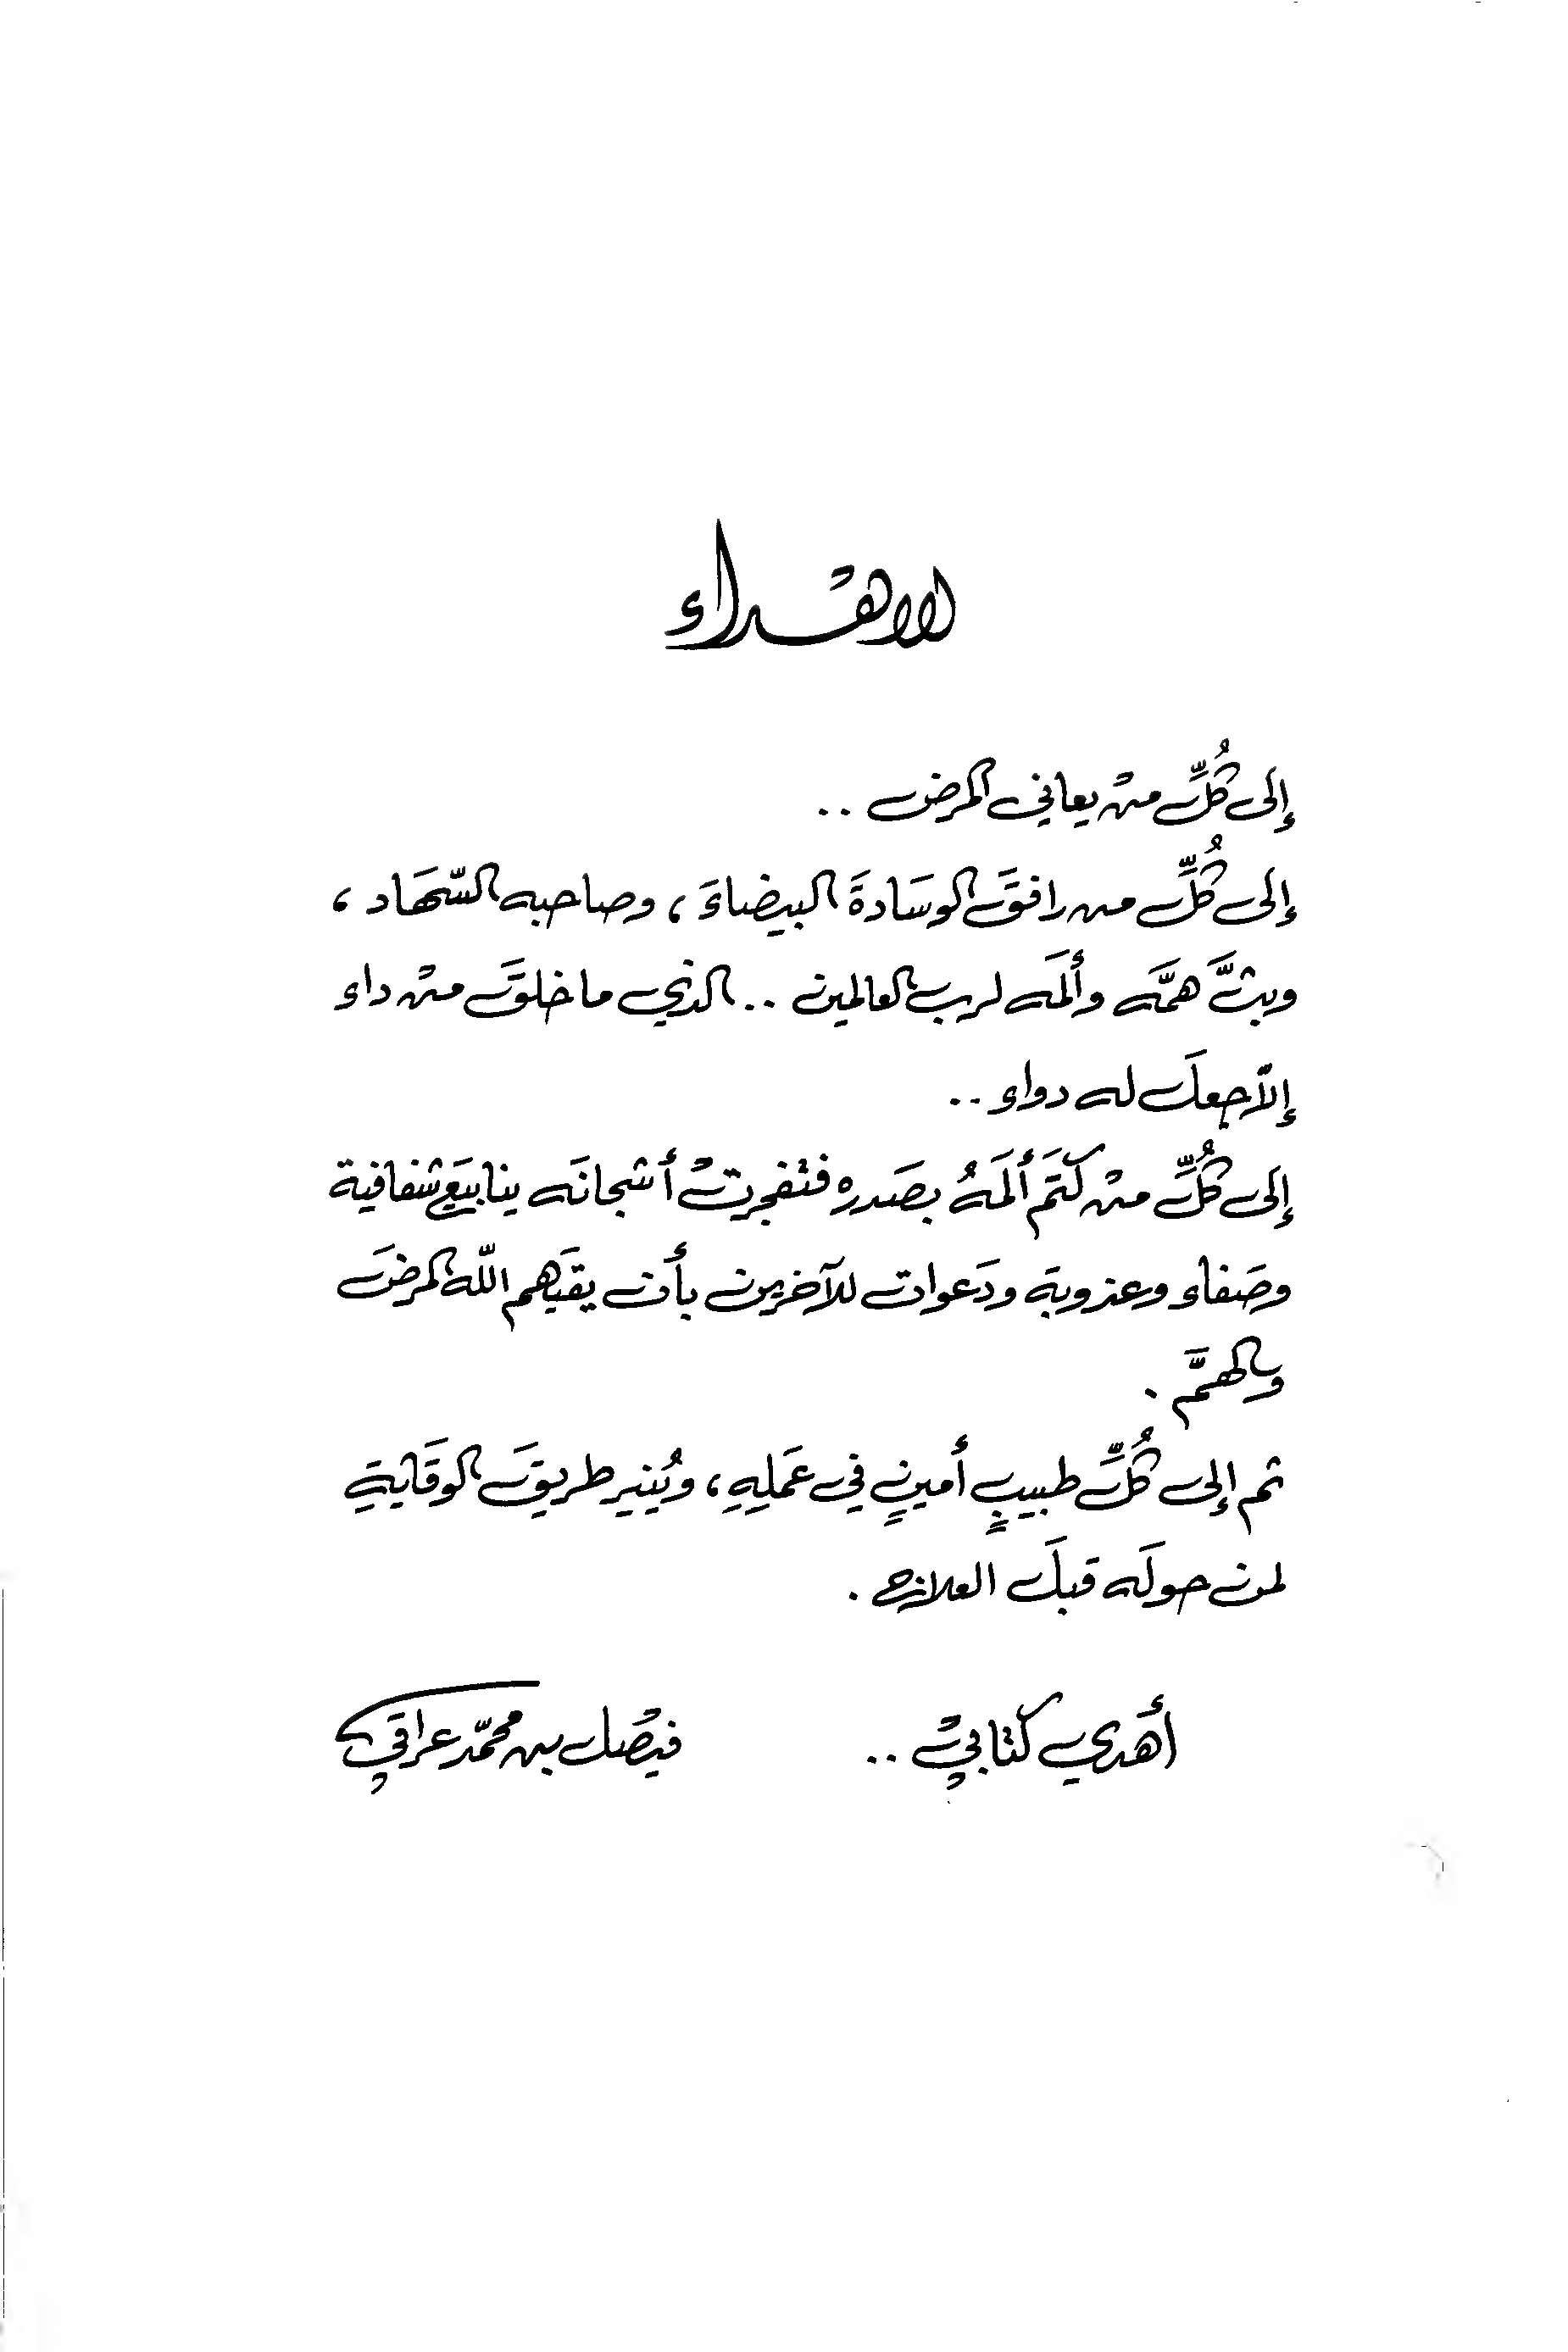 الاهداء
إلى كُلِّ منْ يعاني المرض ..
إلى كُلِّ من رافقَ الوسَادةَ البيضاءَ ، وصاحبه السّهَاد ،
وبثَّ همَّه وألمَه لرب العالمين .. الذي ما خلقَ منْ داء
إلاّ جعلَ له دواء ..
إلى كُلِّ منْ كتَم ألَمَهُ بصَدره فتفجرتْ أشجانَه ينابيَع شفافية
وصَفاء وعذوبة ودَعوات للآخرين بأن يقيَهم اللّه المرضَ
والهمَّ .
ثم إلى كُلِّ طبيبٍ أمينٍ في عَملِهِ ، ويُنير طريقَ الوقَايةِ
لمن حولَه قبلَ العلاج .
أهدي كتابيْ ..
فيصْل بن محمّد عراقي